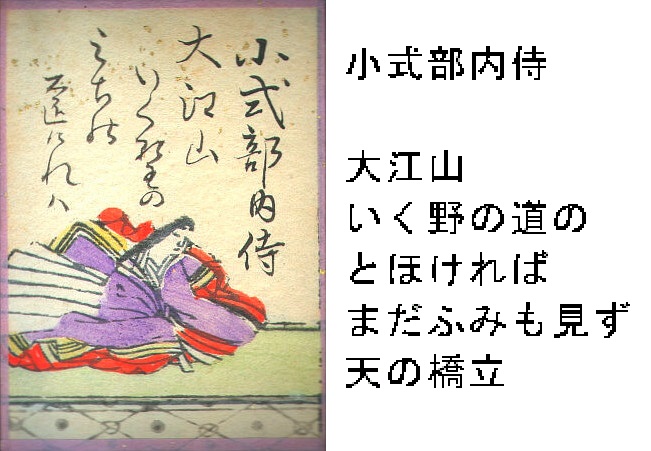 小式部内侍
大江山
いく野の
みちの
遠けれハ
小式部内侍
大江山
いく野の道の
とほければ
まだふみも見ず
天の橋立